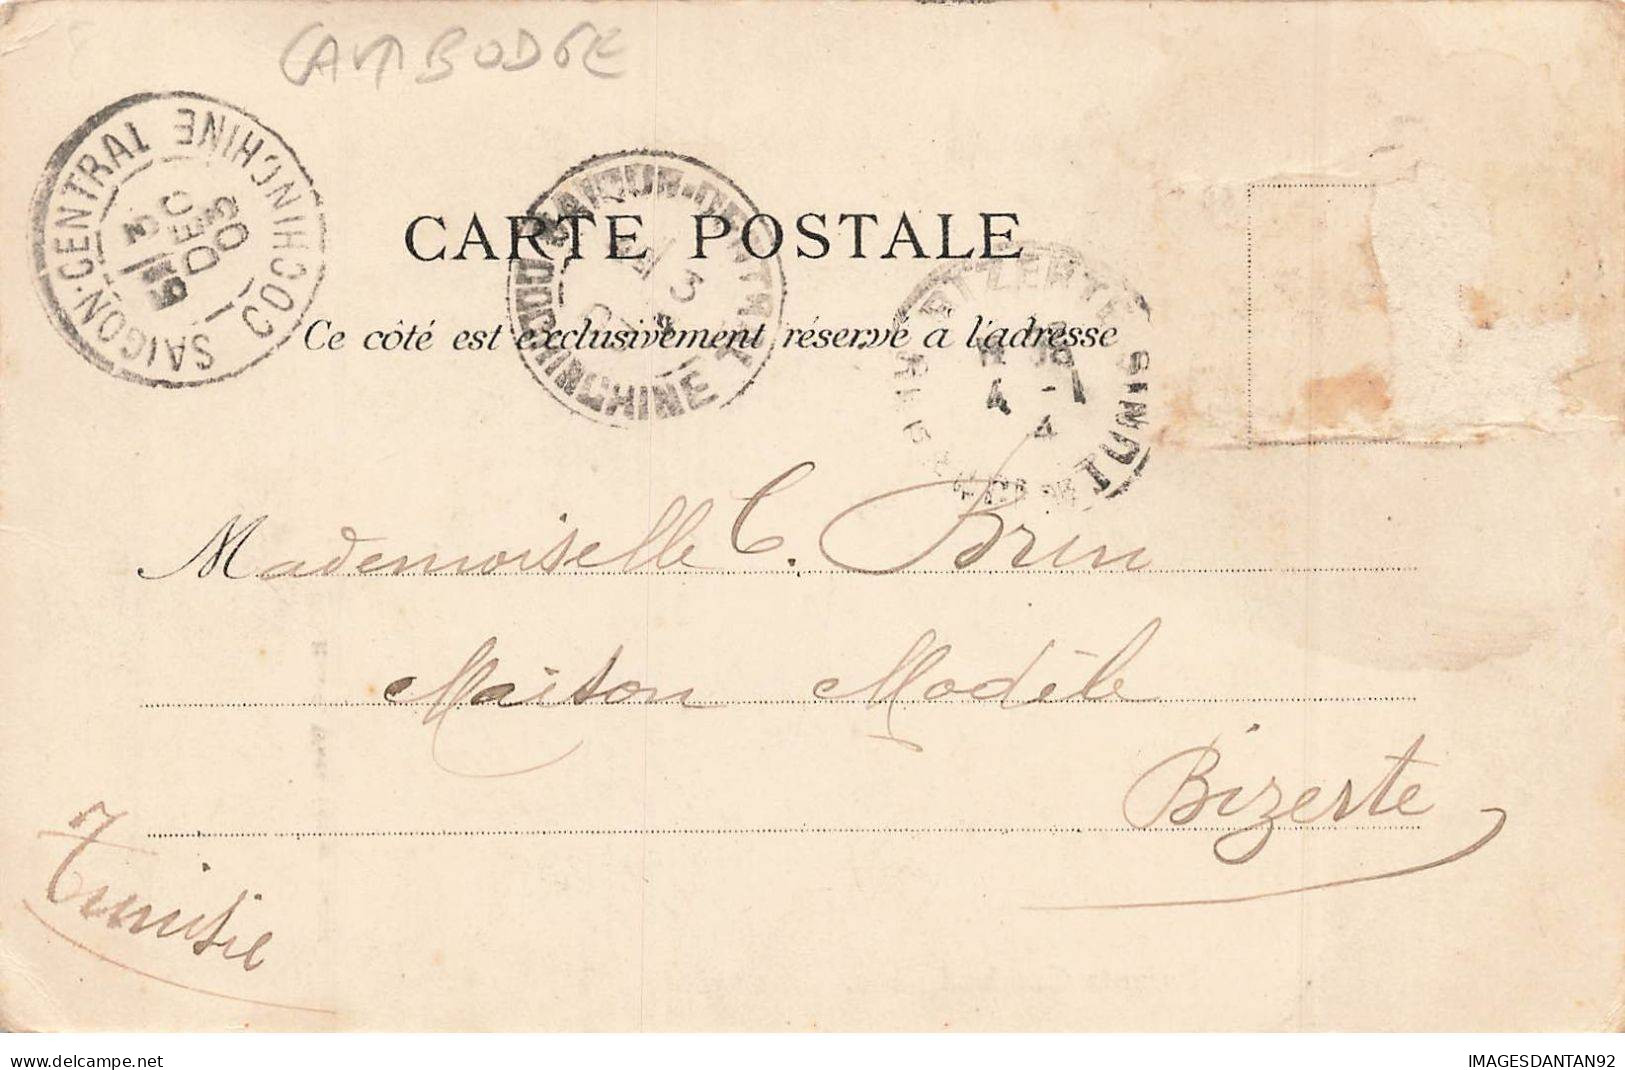 CAMBODGE
SAIGON-CENTRAL
5 DEC 03
COCHINCHINE
COCHINCHINE
BIZERTE
4 -1 4
TUNISIE
CARTE POSTALE
Ce côté est exclusivement réservé a l'adresse
Mademoiselle C. Brun
Maison Modèle
Bizerte
Tunisie
www.delcampe.net
IMAGESDANTAN92